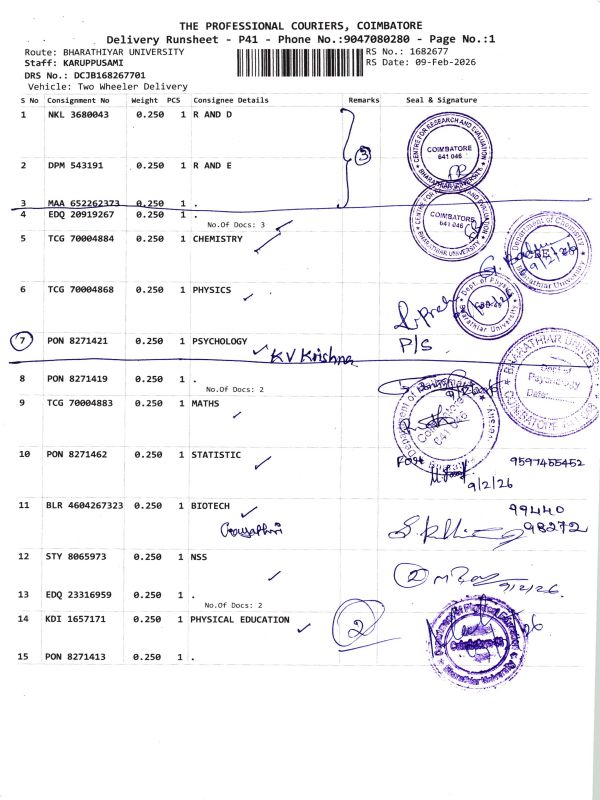 THE PROFESSIONAL COURIERS, COIMBATORE
Delivery Runsheet - P41 - Phone No.:9047080280 - Page No.:1
Route: BHARATHIYAR UNIVERSITY
RS No.: 1682677
Staff: KARUPPUSAMI
RS Date: 09-Feb-2026
DRS No.: DCJB168267701
Vehicle: Two Wheeler Delivery
S No Consignment No Weight PCS Consignee Details Remarks Seal & Signature
1 NKL 3680043 0.250 1 R AND D
CENTRE FOR RESEARCH AND EVALUATION
COIMBATORE
641 046
BHARATHIAR UNIVERSITY
3
2 DPM 543191 0.250 1 R AND E
3 MAA 652262373 0.250 1 .
4 EDQ 20919267 0.250 1 .
COIMBATORE
641 046
No.Of Docs: 3
5 TCG 70004884 0.250 1 CHEMISTRY
Department of Chemistry
9/2/26
Bharathiar University
6 TCG 70004868 0.250 1 PHYSICS
Dept. of Physics
Bharathiar University
P/S
7 PON 8271421 0.250 1 PSYCHOLOGY
KV Krishna
BHARATHIAR UNIVERSITY
Dept of
Psychology
Date:
COIMBATORE
8 PON 8271419 0.250 1 .
No.Of Docs: 2
9 TCG 70004883 0.250 1 MATHS
Department of
10 PON 8271462 0.250 1 STATISTIC
For
9597455452
9/2/26
11 BLR 4604267323 0.250 1 BIOTECH
99440
98272
12 STY 8065973 0.250 1 NSS
2
9/2/26.
13 EDQ 23316959 0.250 1 .
No.Of Docs: 2
14 KDI 1657171 0.250 1 PHYSICAL EDUCATION
2
Bharathiar University
15 PON 8271413 0.250 1 .